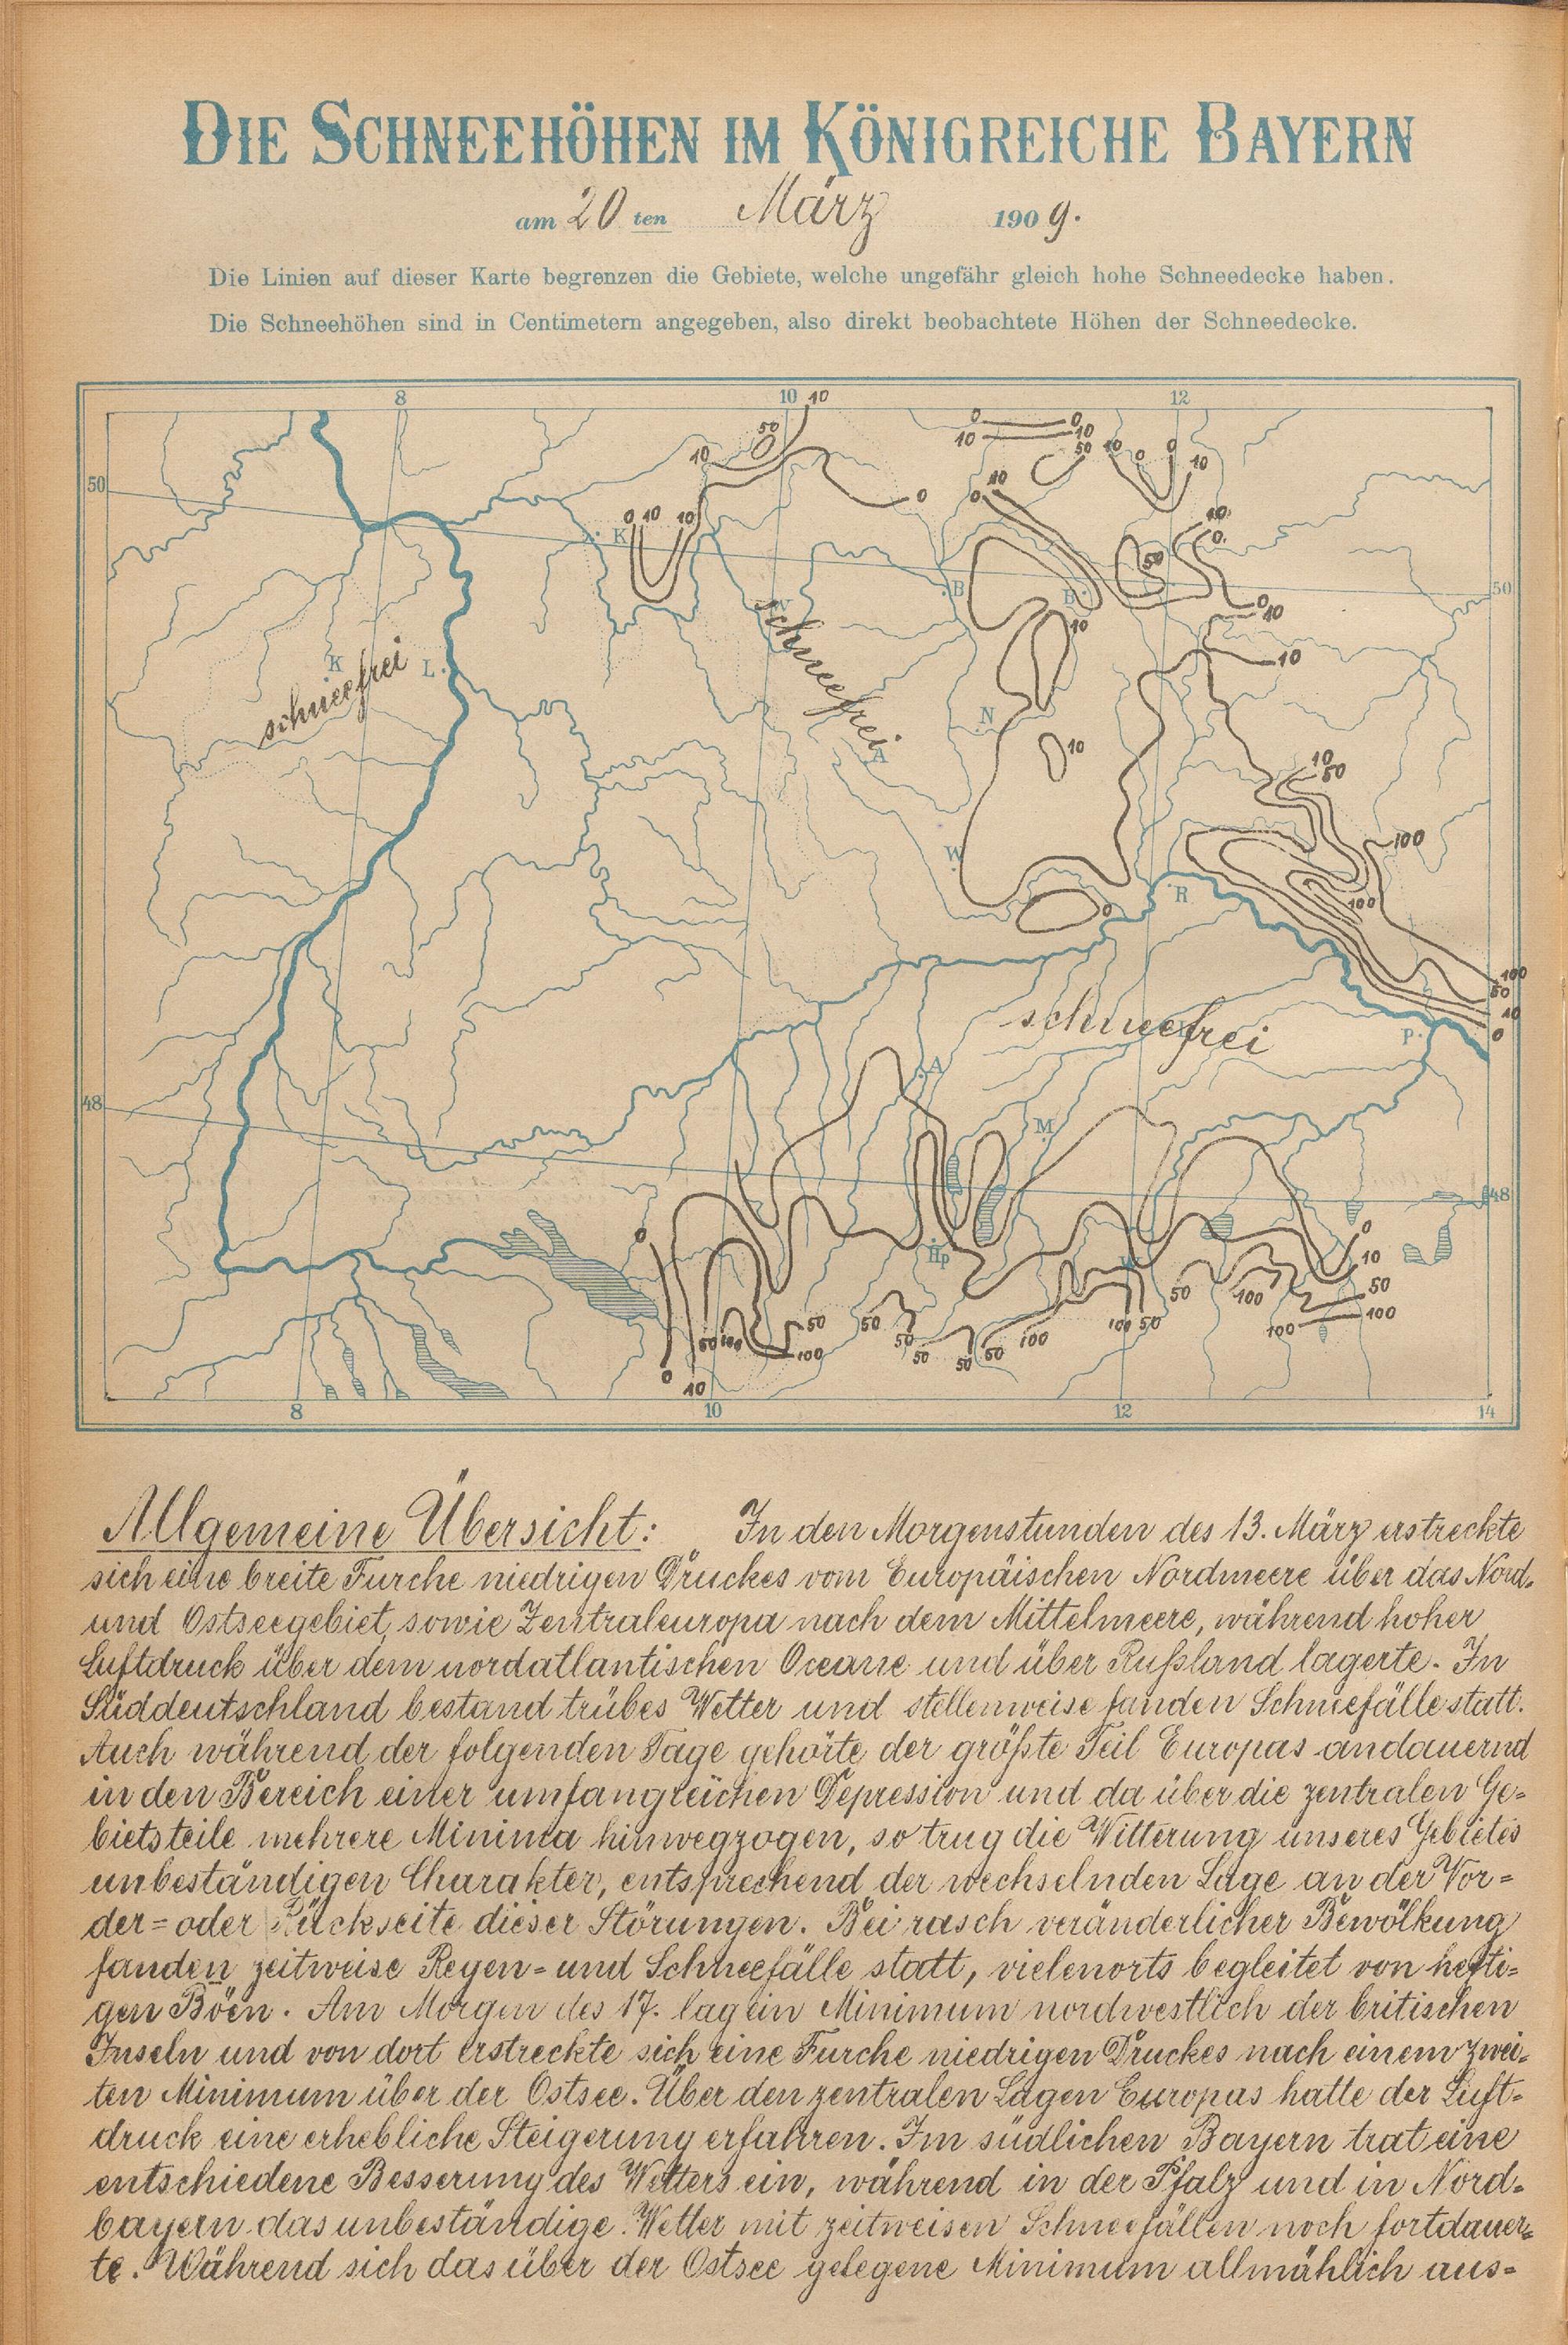 DIE SCHNEEHÖHEN IM KÖNIGREICHE BAYERN
am 20 ten März 1909.
Die Linien auf dieser Karte begrenzen die Gebiete, welche ungefähr gleich hohe Schneedecke haben.
Die Schneehöhen sind in Centimetern angegeben, also direkt beobachtete Höhen der Schneedecke.
8 10 10 12
50 0 0
10 10 50 10 0 0 10
10
50 0 10 0
0 10 10 10
K 0
50
B B 50
W 0 10
10
schneefrei
K L 10
schneefrei
N
A 10
10 50
W 100
R
0 100
100
50
10
schneefrei 0
P
A
48 M
48
0 Hp 0
10
50 100 50
50 100 50 50 100 50 50 50 100 100 50 100 100
0 10
8 10 12 14
Allgemeine Übersicht: In den Morgenstunden des 13. März erstreckte
sich eine breite Furche niedrigen Druckes vom Europäischen Nordmeere über das Nord-
und Ostseegebiet, sowie Zentraleuropa nach dem Mittelmeere, während hoher
Luftdruck über dem nordatlantischen Oceane und über Rußland lagerte. In
Süddeutschland bestand trübes Wetter und stellenweise fanden Schneefälle statt.
Auch während der folgenden Tage gehörte der größte Teil Europas andauernd
in den Bereich einer umfangreichen Depression und da über die zentralen Ge-
bietsteile mehrere Minima hinwegzogen, so trug die Witterung unseres Gebietes
unbeständigen Charakter, entsprechend der wechselnden Lage an der Vor=
der=oder Rückseite dieser Störungen. Bei rasch veränderlicher Bewölkung
fanden zeitweise Regen=und Schneefälle statt, vielenorts begleitet von hefti=
gen Böen. Am Morgen des 17. lag ein Minimum nordwestlich der britischen
Inseln und von dort erstreckte sich eine Furche niedrigen Druckes nach einem zwei=
ten Minimum über der Ostsee. Über den zentralen Lagen Europas hatte der Luft=
druck eine erhebliche Steigerung erfahren. Im südlichen Bayern trat eine
entschiedene Besserung des Wetters ein, während in der Pfalz und in Nord=
bayern das unbeständige Wetter mit zeitweisen Schneefällen noch fortdauer=
te. Während sich das über der Ostsee gelegene Minimum allmählich aus=